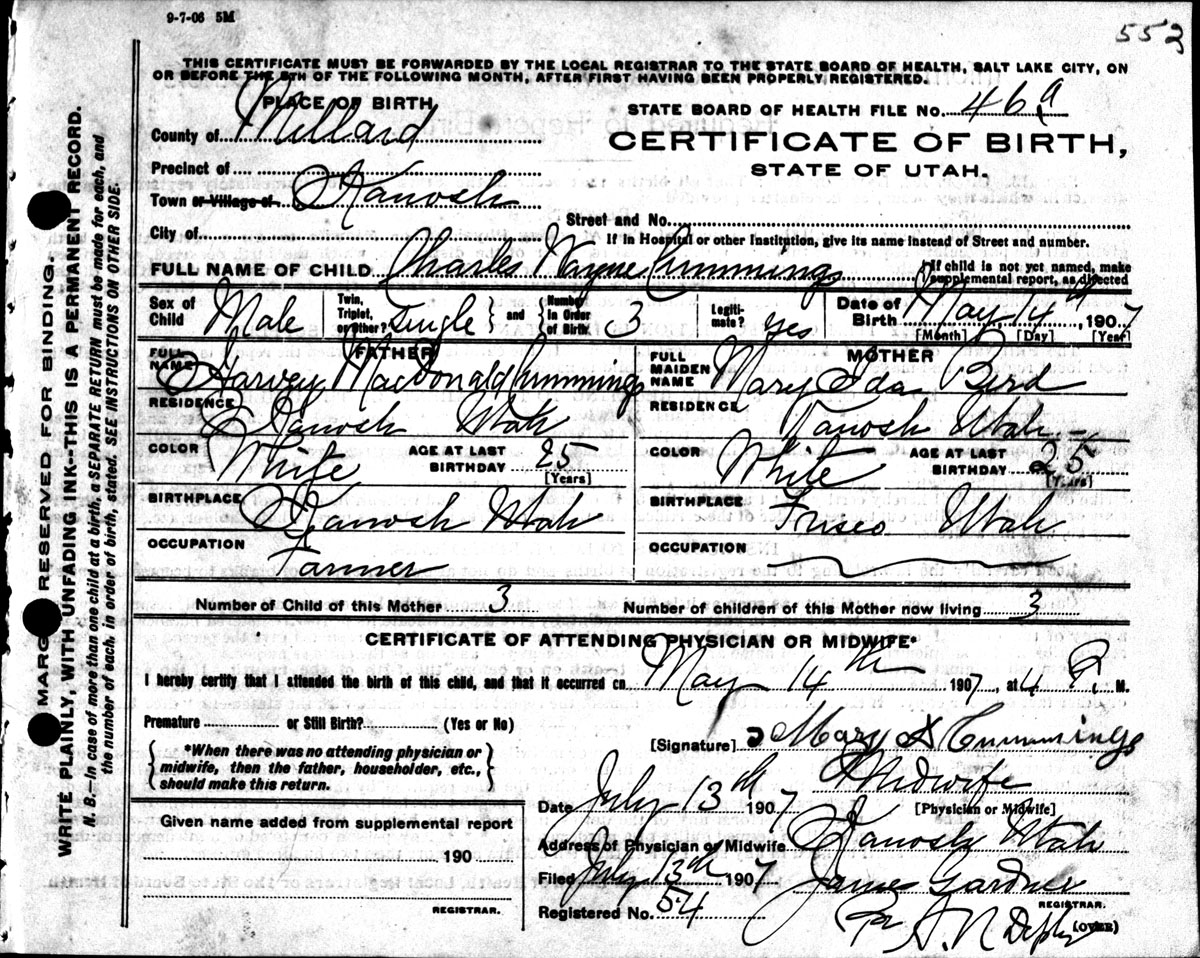 9-7-06 5M
552
THIS CERTIFICATE MUST BE FORWARDED BY THE LOCAL REGISTRAR TO THE STATE BOARD OF HEALTH, SALT LAKE CITY, ON
OR BEFORE THE 5TH OF THE FOLLOWING MONTH, AFTER FIRST HAVING BEEN PROPERLY REGISTERED.
PLACE OF BIRTH
County of Millard
Precinct of
Town or Village of Kanosh
City of
STATE BOARD OF HEALTH FILE No. 46a
CERTIFICATE OF BIRTH,
STATE OF UTAH.
Street and No.
If in Hospital or other Institution, give its name instead of Street and number.
FULL NAME OF CHILD Charles Wayne Cummings
If child is not yet named, make
supplemental report, as directed
Sex of Child Male
Twin, Triplet, or Other? Single and Number in Order of Birth 3
Legitimate? yes
Date of Birth May 14th, 1907
[Month] [Day] [Year]
FATHER
FULL NAME Harvey MacDonald Cummings
RESIDENCE Kanosh Utah
COLOR White AGE AT LAST BIRTHDAY 25 [Years]
BIRTHPLACE Kanosh Utah
OCCUPATION Farmer
MOTHER
FULL MAIDEN NAME Mary Ida Bird
RESIDENCE Kanosh Utah
COLOR White AGE AT LAST BIRTHDAY 25 [Years]
BIRTHPLACE Frisco Utah
OCCUPATION
Number of Child of this Mother 3 Number of children of this Mother now living 3
CERTIFICATE OF ATTENDING PHYSICIAN OR MIDWIFE*
I hereby certify that I attended the birth of this child, and that it occurred on May 14th 1907, at 4 P. M.
Premature or Still Birth? (Yes or No)
*When there was no attending physician or
midwife, then the father, householder, etc.,
should make this return.
[Signature] Mary Cummings
Midwife
[Physician or Midwife]
Date July 13th 1907
Address of Physician or Midwife Kanosh Utah
Filed July 13th 1907 James Gardner
REGISTRAR.
Registered No. 54
Per A. N.
(OVER)
Given name added from supplemental report
190
REGISTRAR.
MARGIN RESERVED FOR BINDING.
WRITE PLAINLY, WITH UNFADING INK--THIS IS A PERMANENT RECORD.
N. B.—In case of more than one child at a birth, a SEPARATE RETURN must be made for each, and
the number of each, in order of birth, stated. SEE INSTRUCTIONS ON OTHER SIDE.